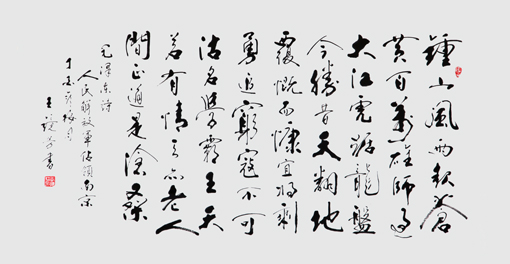 鍾山風雨起蒼
黃百萬雄師過
大江虎踞龍盤
今勝昔天翻地
覆慨而慷宜將剩
勇追窮寇不可
沽名學霸王天
若有情天亦老人
間正道是滄桑
毛澤東詩
人民解放軍佔領南京
丁亥年梅月
王書